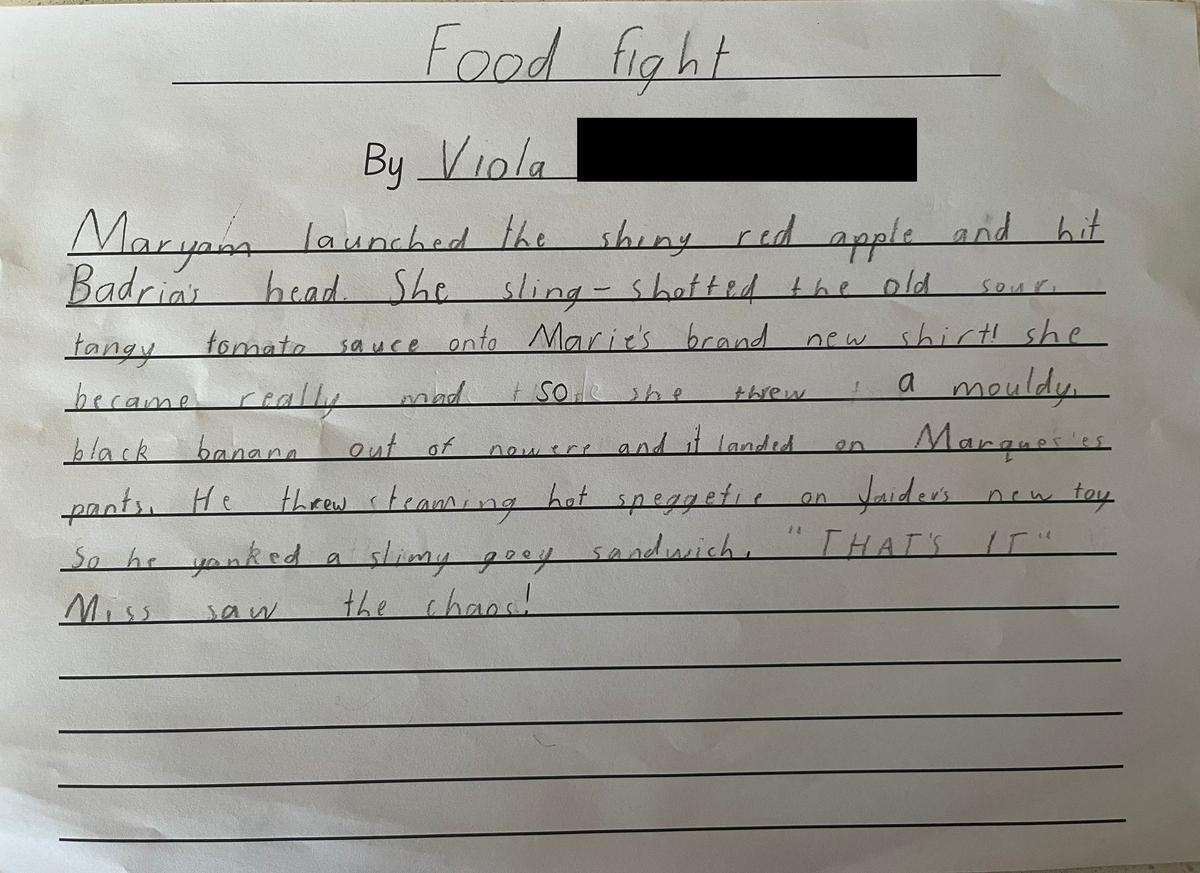 Food fight
By Viola
Maryam launched the shiny red apple and hit
Badria's head. She sling-shotted the old sour,
tangy tomato sauce onto Marie's brand new shirt! she
became really mad so she threw a mouldy,
black banana out of nowere and it landed on Marques'es
pants. He threw steaming hot speggetie on Jaider's new toy
so he yanked a slimy goey sandwich. "THAT'S IT"
Miss saw the chaos!